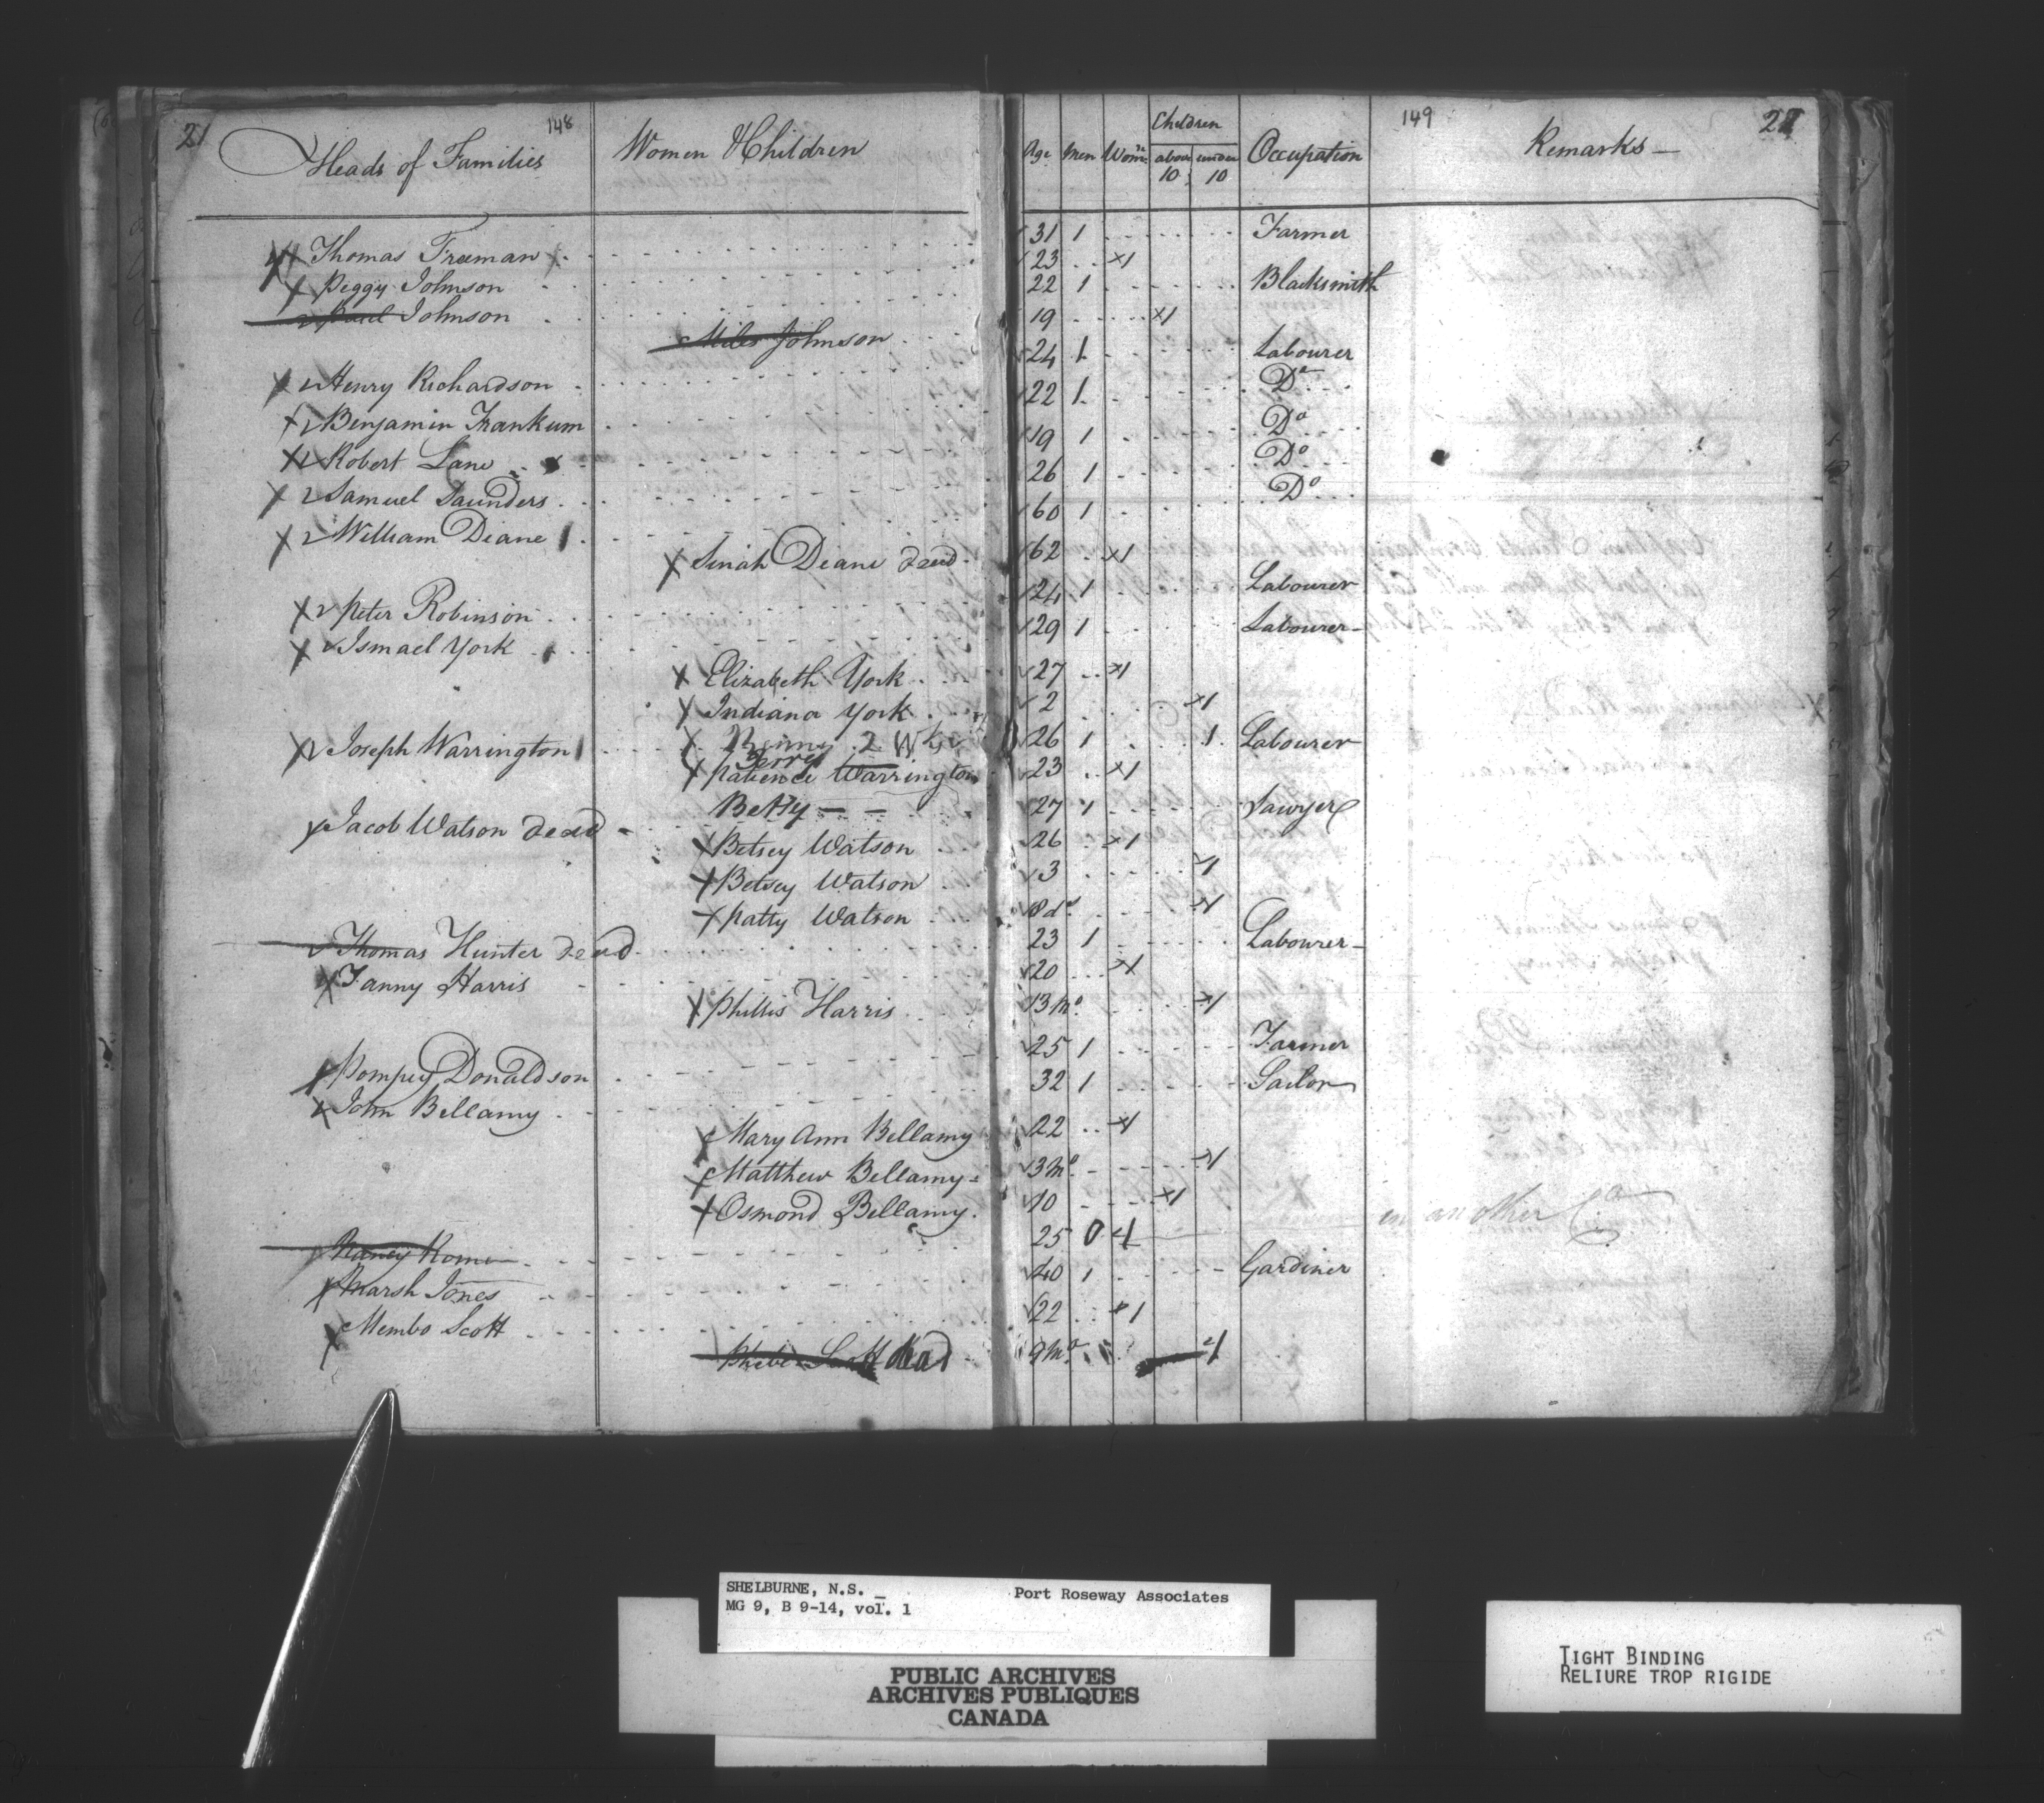 21 148 149 22
Heads of Families Women & Children Age Men Wom.n Children above 10 under 10 Occupation Remarks
Thomas Freeman 31 1 Farmer
Peggy Johnson 23 1
Paul Johnson 22 1 Blacksmith
Miles Johnson 19 1
Henry Richardson 24 1 Labourer
Benjamin Frankum 22 1 Do
Robert Lane 19 1 Do
Samuel Saunders 26 1 Do
William Diane 60 1 Do
Sinah Diane dead 62 1
Peter Robinson 24 1 Labourer
Ismael York 29 1 Labourer
Elizabeth York 27 1
Indiana York 2 1
Joseph Warrington 2 Wks 26 1 1 Labourer
Patience Warrington 23 1
Betty
Jacob Watson dead 27 1 Sawyer
Betsey Watson 26 1
Betsey Watson 3 1
Patty Watson 18 do 1
Thomas Hunter dead 23 1 Labourer
Fanny Harris 20 1
Phillis Harris 13 Mo 1
Pompey Donaldson 25 1 Farmer
John Bellamy 32 1 Sailor
Mary Ann Bellamy 22 1
Matthew Bellamy 3 Mo 1
Osmond Bellamy 10 1
Nancy 25 0 1 in another Co
Marsh Jones 40 1 Gardiner
Membo Scott 22 1
Phebe Scott dead 9 Mo 1
SHELBURNE, N.S. Port Roseway Associates
MG 9, B 9-14, vol. 1
PUBLIC ARCHIVES
ARCHIVES PUBLIQUES
CANADA
TIGHT BINDING
RELIURE TROP RIGIDE